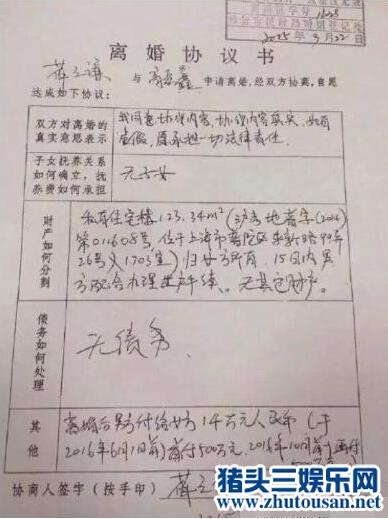 2015年9月22日
离婚协议书
与 申请离婚,经双方协商,自愿
达成如下协议:
双方对离婚的
真实意思表示
我同意协议内容,协议内容真实,如有
虚假,愿承担一切法律责任
子女抚养关系
如何确立,抚
养费如何承担
无子女
财产如何分割
私有住宅楼123.34m²(沪房地普字(2014)
第011608号,位于上海市普陀区 99弄
26号 1703室)归女方所有,15日内男
方配合办理过户手续。无其它财产。
债务如何处理
无债务.
其他
离婚后男方付给女方1千万元人民币(于
2016年6月1日前)首付500万元,2016年10月前再付
500万元
协商人签字(按手印)
猪头三娱乐网
www.zhutousan.net